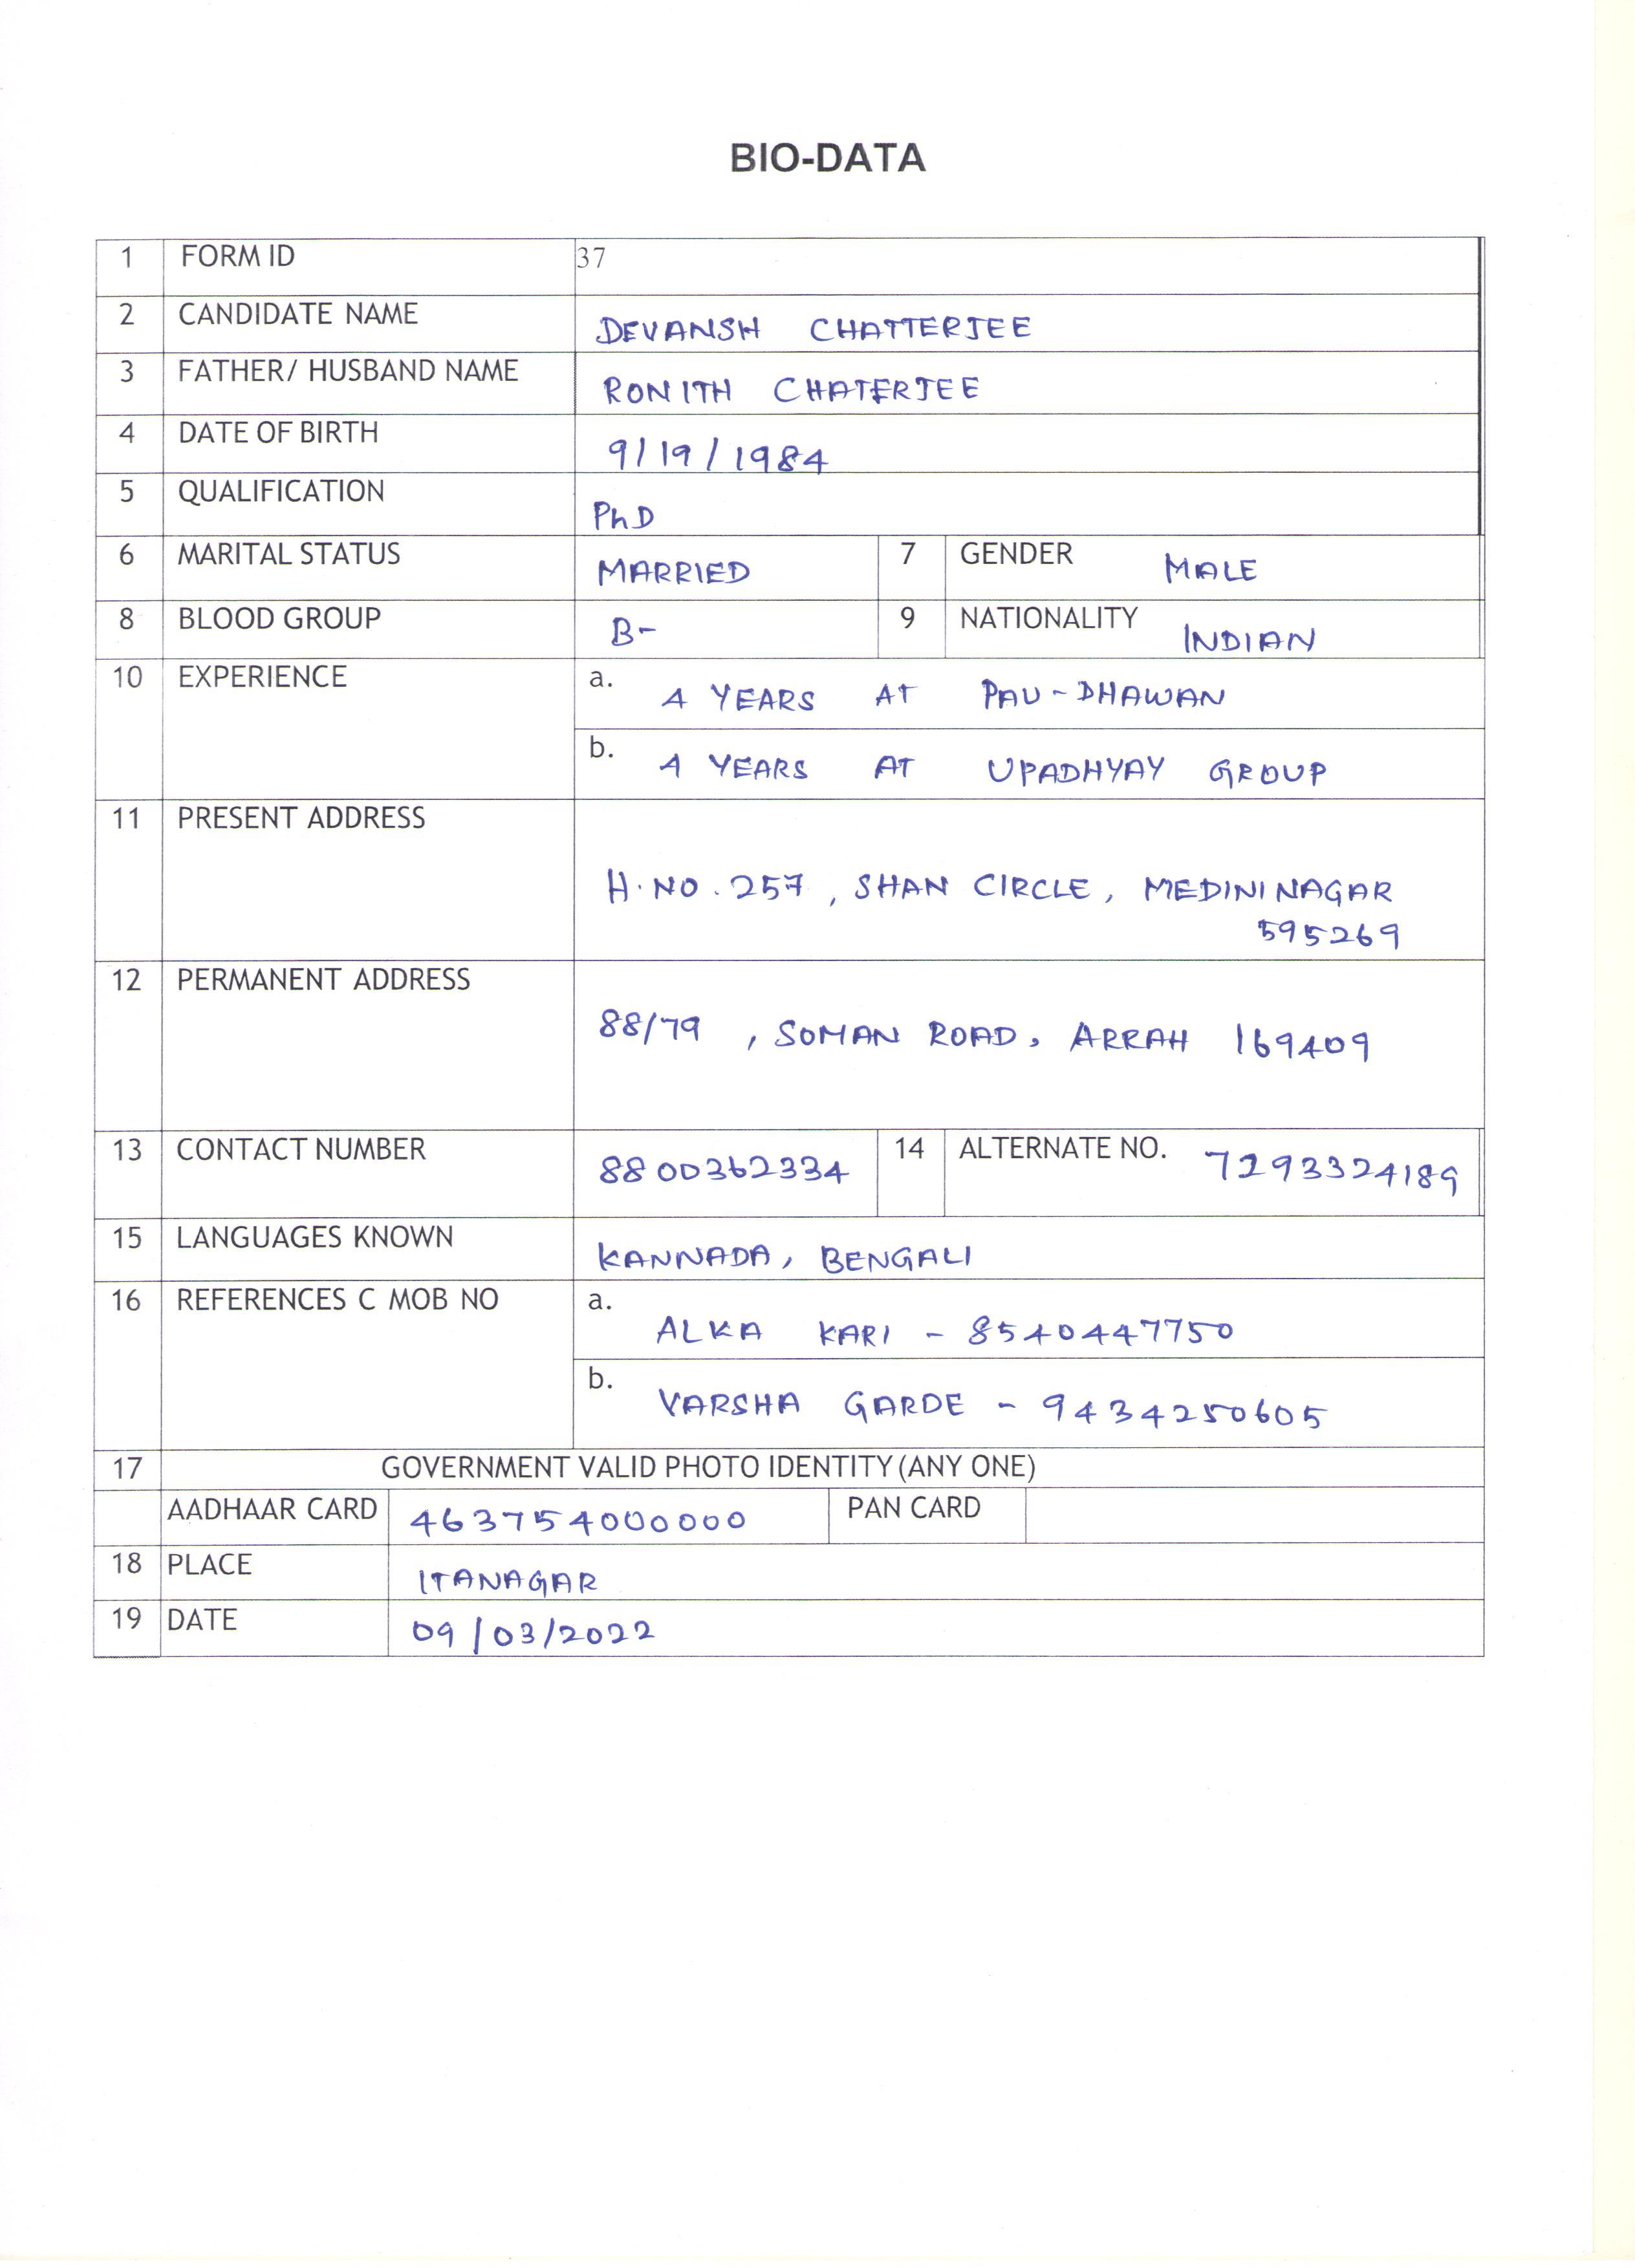 BIO-DATA
1 FORM ID 37
2 CANDIDATE NAME DEVANSH CHATTERJEE
3 FATHER/ HUSBAND NAME RONITH CHATERJEE
4 DATE OF BIRTH 9/19/1984
5 QUALIFICATION PhD
6 MARITAL STATUS MARRIED 7 GENDER MALE
8 BLOOD GROUP B- 9 NATIONALITY INDIAN
10 EXPERIENCE a. 4 YEARS AT PAU-DHAWAN
b. 4 YEARS AT UPADHYAY GROUP
11 PRESENT ADDRESS
H.NO.257, SHAN CIRCLE, MEDININAGAR
595269
12 PERMANENT ADDRESS
88/79, SOMAN ROAD, ARRAH 169409
13 CONTACT NUMBER 8800362334 14 ALTERNATE NO. 7293324189
15 LANGUAGES KNOWN KANNADA, BENGALI
16 REFERENCES C MOB NO a. ALKA KARI - 8540447750
b. VARSHA GARDE - 9434250605
17 GOVERNMENT VALID PHOTO IDENTITY(ANY ONE)
AADHAAR CARD 463754000000 PAN CARD
18 PLACE ITANAGAR
19 DATE 09/03/2022